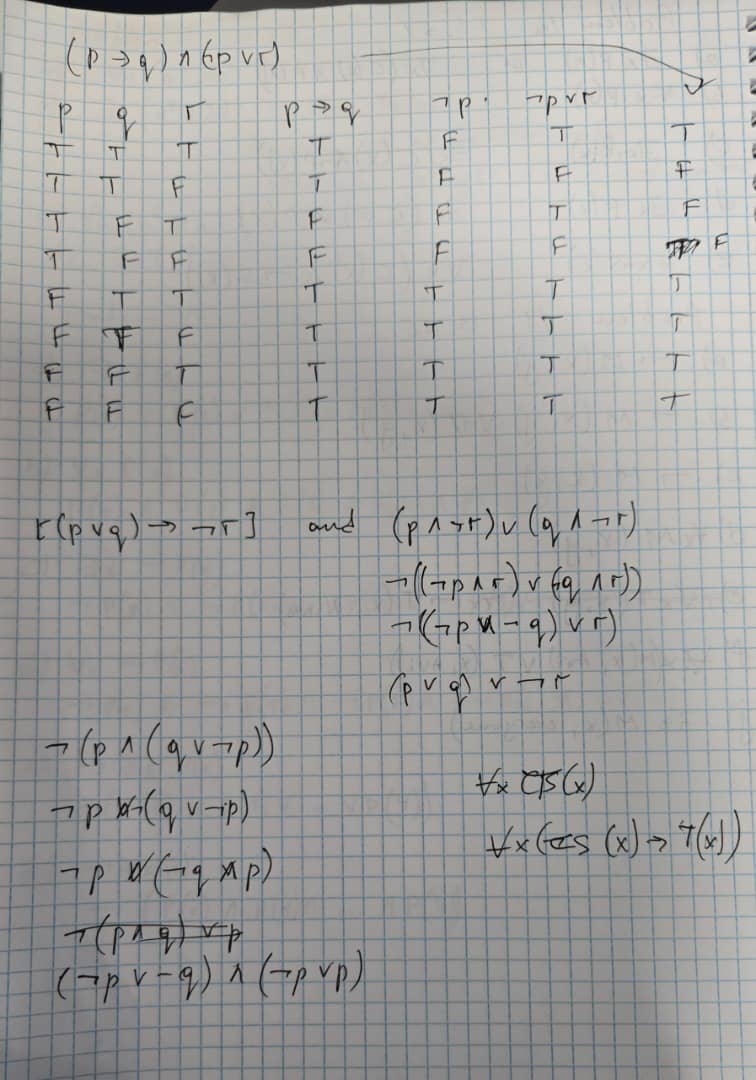 (p → q) ∧ (¬p ∨ r)
p q r p → q ¬p ¬p ∨ r
T T T T F T T
T T F T F F F
T F T F F T F
T F F F F F F
F T T T T T T
F T F T T T T
F F T T T T T
F F F T T T T
[(p ∨ q) → ¬r] and (p ∧ ¬r) ∨ (q ∧ ¬r)
¬((¬p ∧ r) ∨ (¬q ∧ r))
¬((¬p ∧ ¬q) ∨ r)
(p ∨ q) ∨ ¬r
¬(p ∧ (q ∨ ¬p))
¬p ∨ ¬(q ∨ ¬p)
¬p ∨ (¬q ∧ p)
¬(p ∧ q) ∨ p
(¬p ∨ ¬q) ∧ (¬p ∨ p)
∀x CS(x)
∀x(CS(x) → T(x))